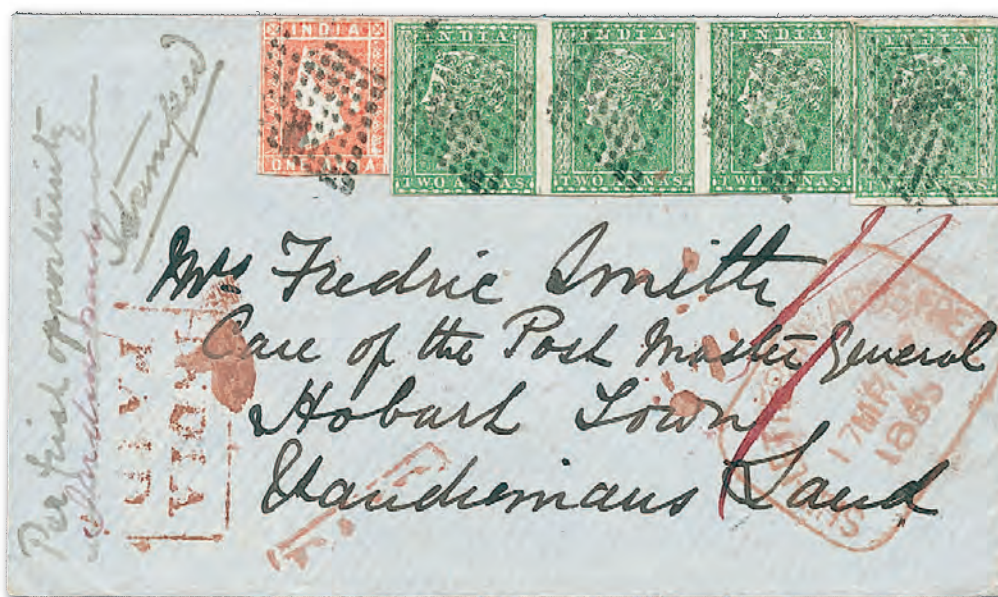 INDIA
ONE ANNA
INDIA
TWO ANNAS
INDIA
TWO ANNAS
INDIA
TWO ANNAS
INDIA
TWO ANNAS
Per first opportunity
Stamped
Mrs Fredric Smith
Care of the Post Master General
Hobart Town
Vandiemans Land
INDIA
PAID
17 MR
1855